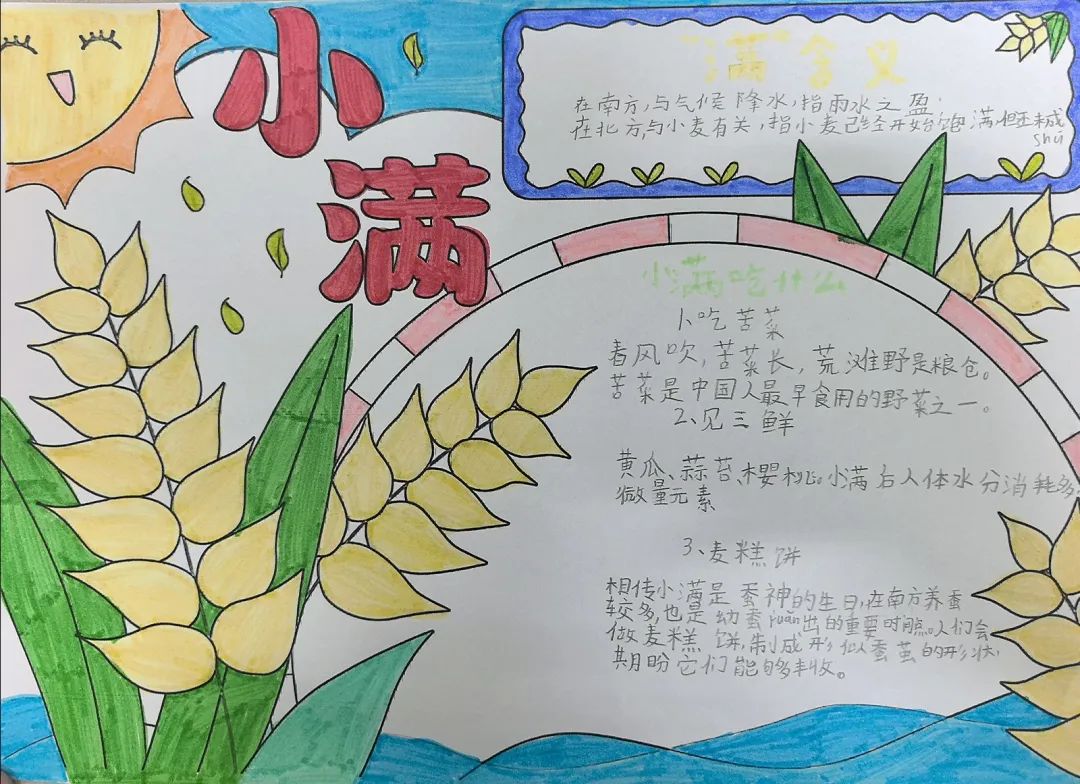 小满
"满"含义
在南方,与气候降水,指雨水之盈;
在北方,与小麦有关,指小麦已经开始饱满,但还未成
shú
小满吃什么
1、吃苦菜
春风吹,苦菜长,荒滩野是粮仓。
苦菜是中国人最早食用的野菜之一。
2、见三鲜
黄瓜、蒜苔、樱桃。小满后人体水分消耗多,
微量元素
3、麦糕饼
相传小满是蚕神的生日,在南方养蚕
较多,也是幼蚕ruǎn出的重要时间点。人们会
做麦糕饼,制成形似蚕茧的形状,
期盼它们能够丰收。